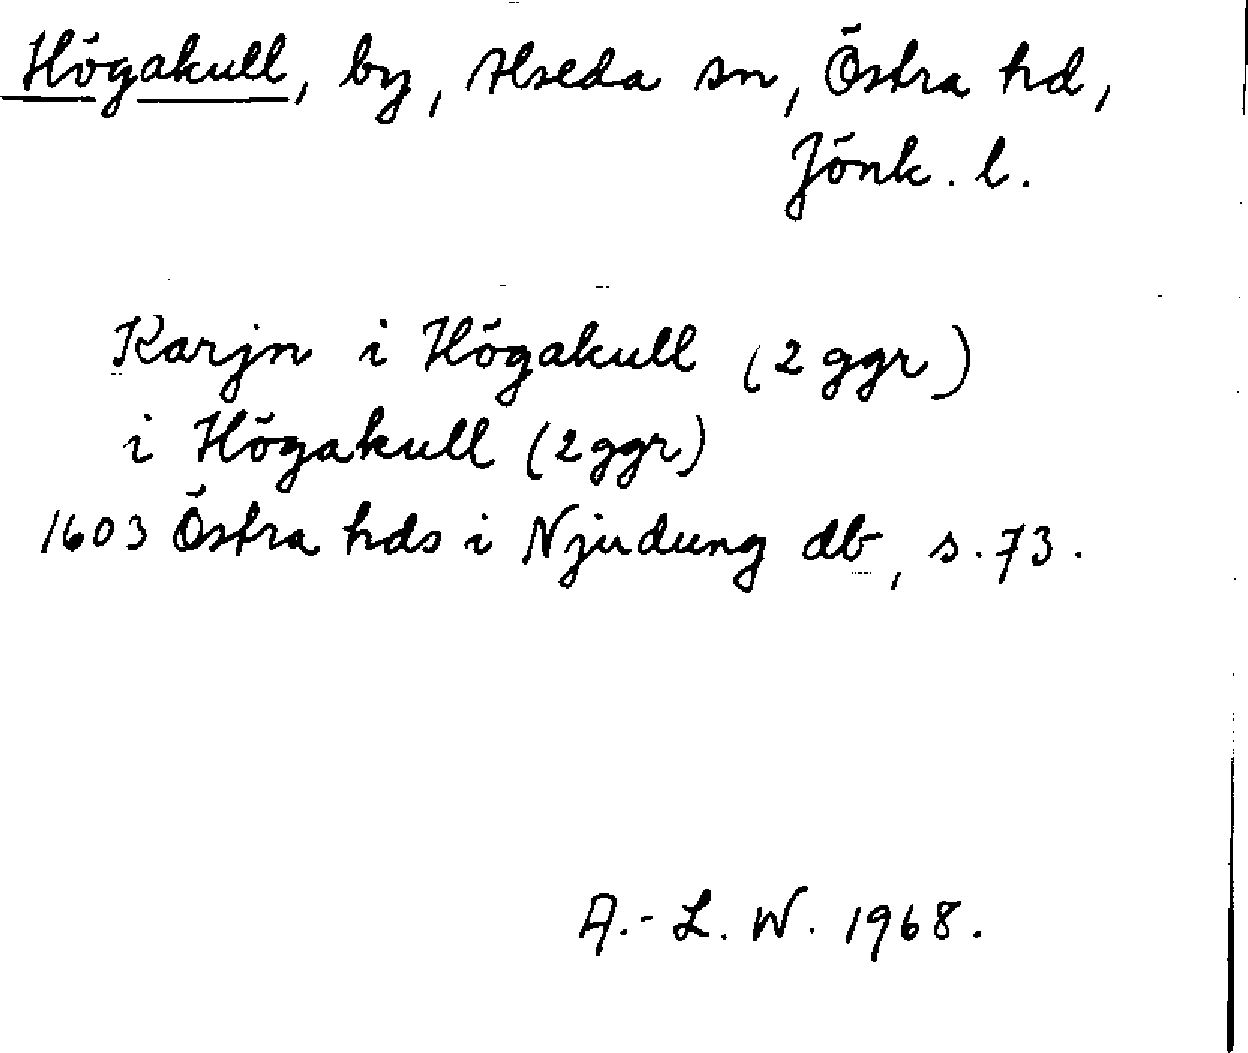 Högakull, by, Alseda sn, Östra hd,
Jönk. l.
Karjn i Högakull (2 ggr)
i Högakull (2 ggr)
1603 Östra hds i Njudung db, s. 73.
A.-L. W. 1968.